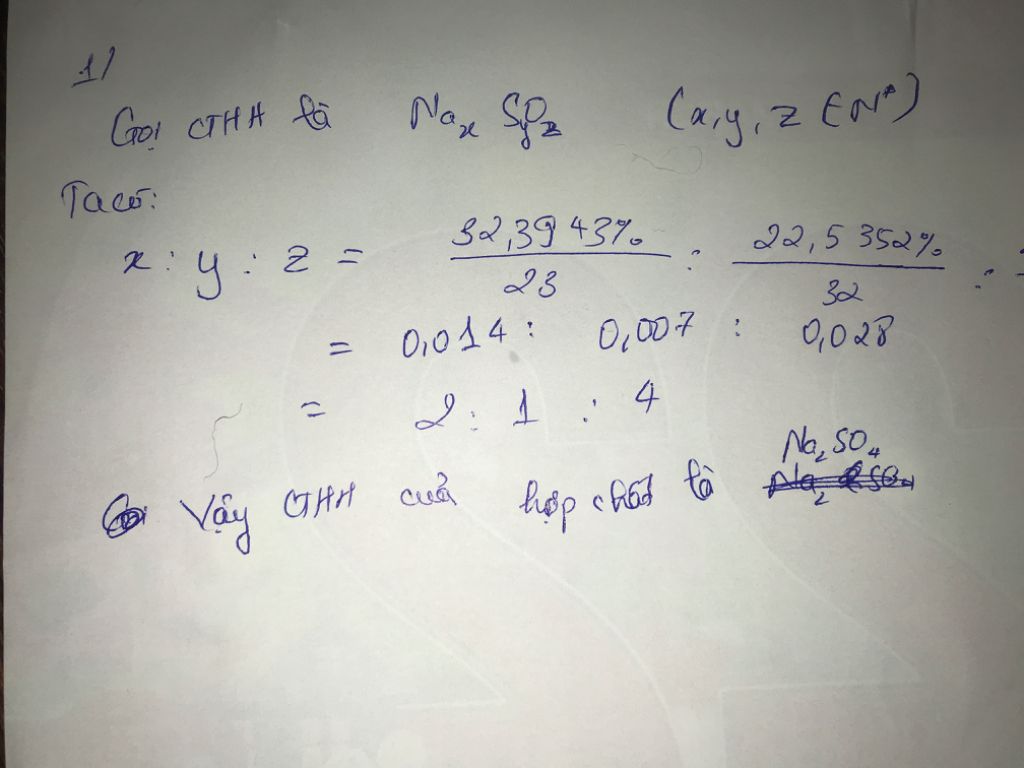 1/
Gọi CTHH là NaxSyOz (x, y, z ∈ N*)
Ta có:
x : y : z = 32,3943% / 23 : 22,5352% / 32 :
= 0,014 : 0,007 : 0,028
= 2 : 1 : 4
Vậy CTHH của hợp chất là Na2SO4